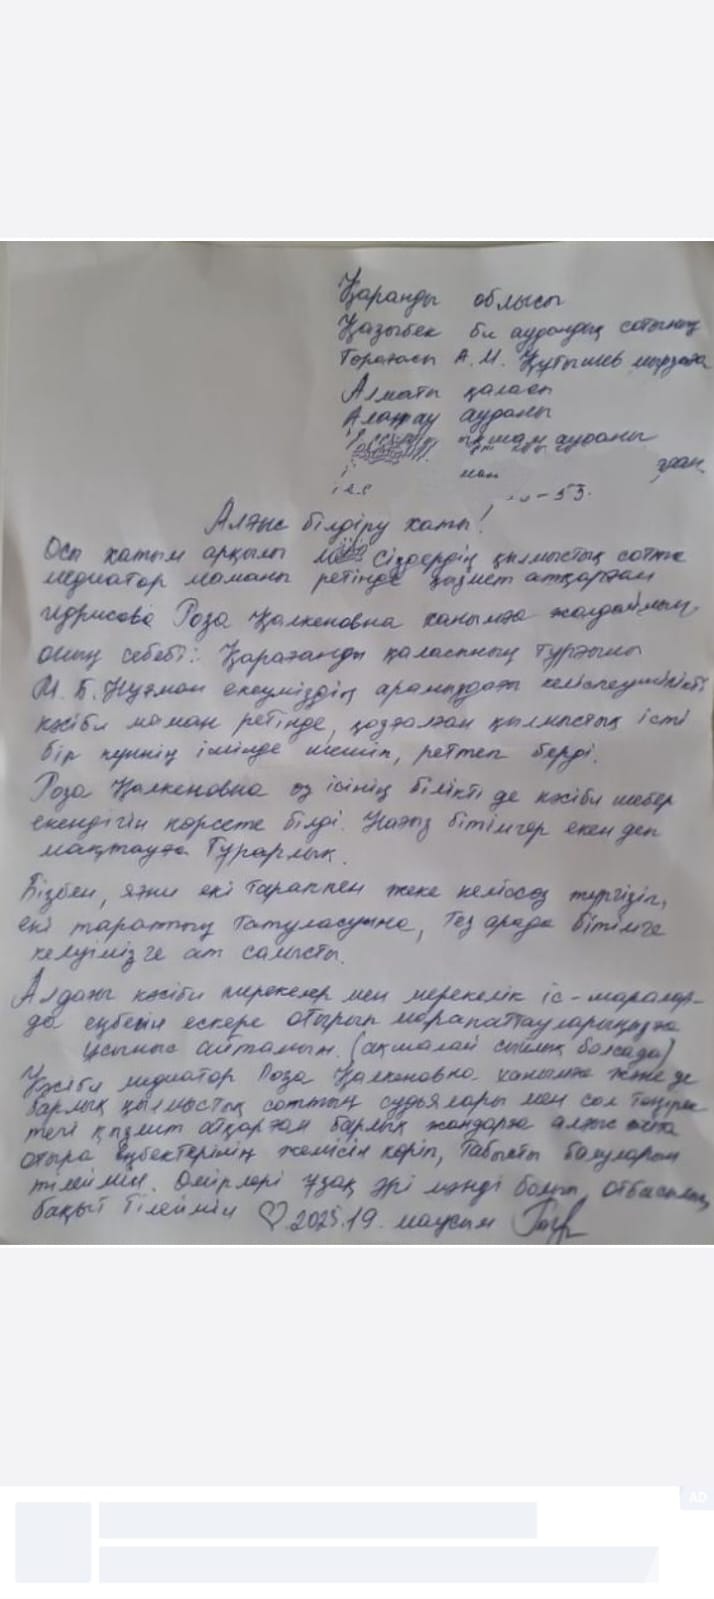 Қаранды облысы
Қазыбек би аудандық сотының
Төрағасы А.М. Құтышев мырзаға
Алматы қаласы
Алатау ауданы
ықшам ауданы
- 53.
Алғыс білдіру хаты!
Осы хатым арқылы Сіздердің қылмыстық сотта
медиатор маманы ретінде қызмет атқарған
Идрисова Роза Қалкеновна ханымға жолдаймын.
оның себебі: Қарағанды қаласының тұрғыны
М.Б.Нұгман екеуміздің арамыздағы келіспеушілікті
кәсіби маман ретінде, қозғалған қылмыстық істі
бір күннің ішінде шешіп, реттеп берді.
Роза Қалкеновна өз ісінің білікті де кәсіби шебер
екендігін көрсете білді. Нағыз бітімгер екен деп
мақтауға Тұрарлық.
Бізбен, яғни екі тараппен жеке келіссөз жүргізіп,
екі тараптың Татуласуына, Тез арада бітімге
келуімізге ат салысты.
Алдағы кәсіби мерекелер мен мерекелік іс-шаралар-
да еңбегін ескере отырып марапаттауларыңызға
Ұсыныс айтамын. (ақшалай сыйлық болсада)
Кәсіби медиатор Роза Қалкеновна ханымға және де
барлық қылмыстық соттың судьялары мен сол төңірек
тегі қызмет атқарған барлық жандарға алғыс айта
отыра Еңбектерінің жемісін көріп, Табысты болуларын
тілеймін. Өмірлері Ұзақ әрі мәнді болып, отбасылық
бақыт Тілеймін ♡ 2025.19. маусым
AD